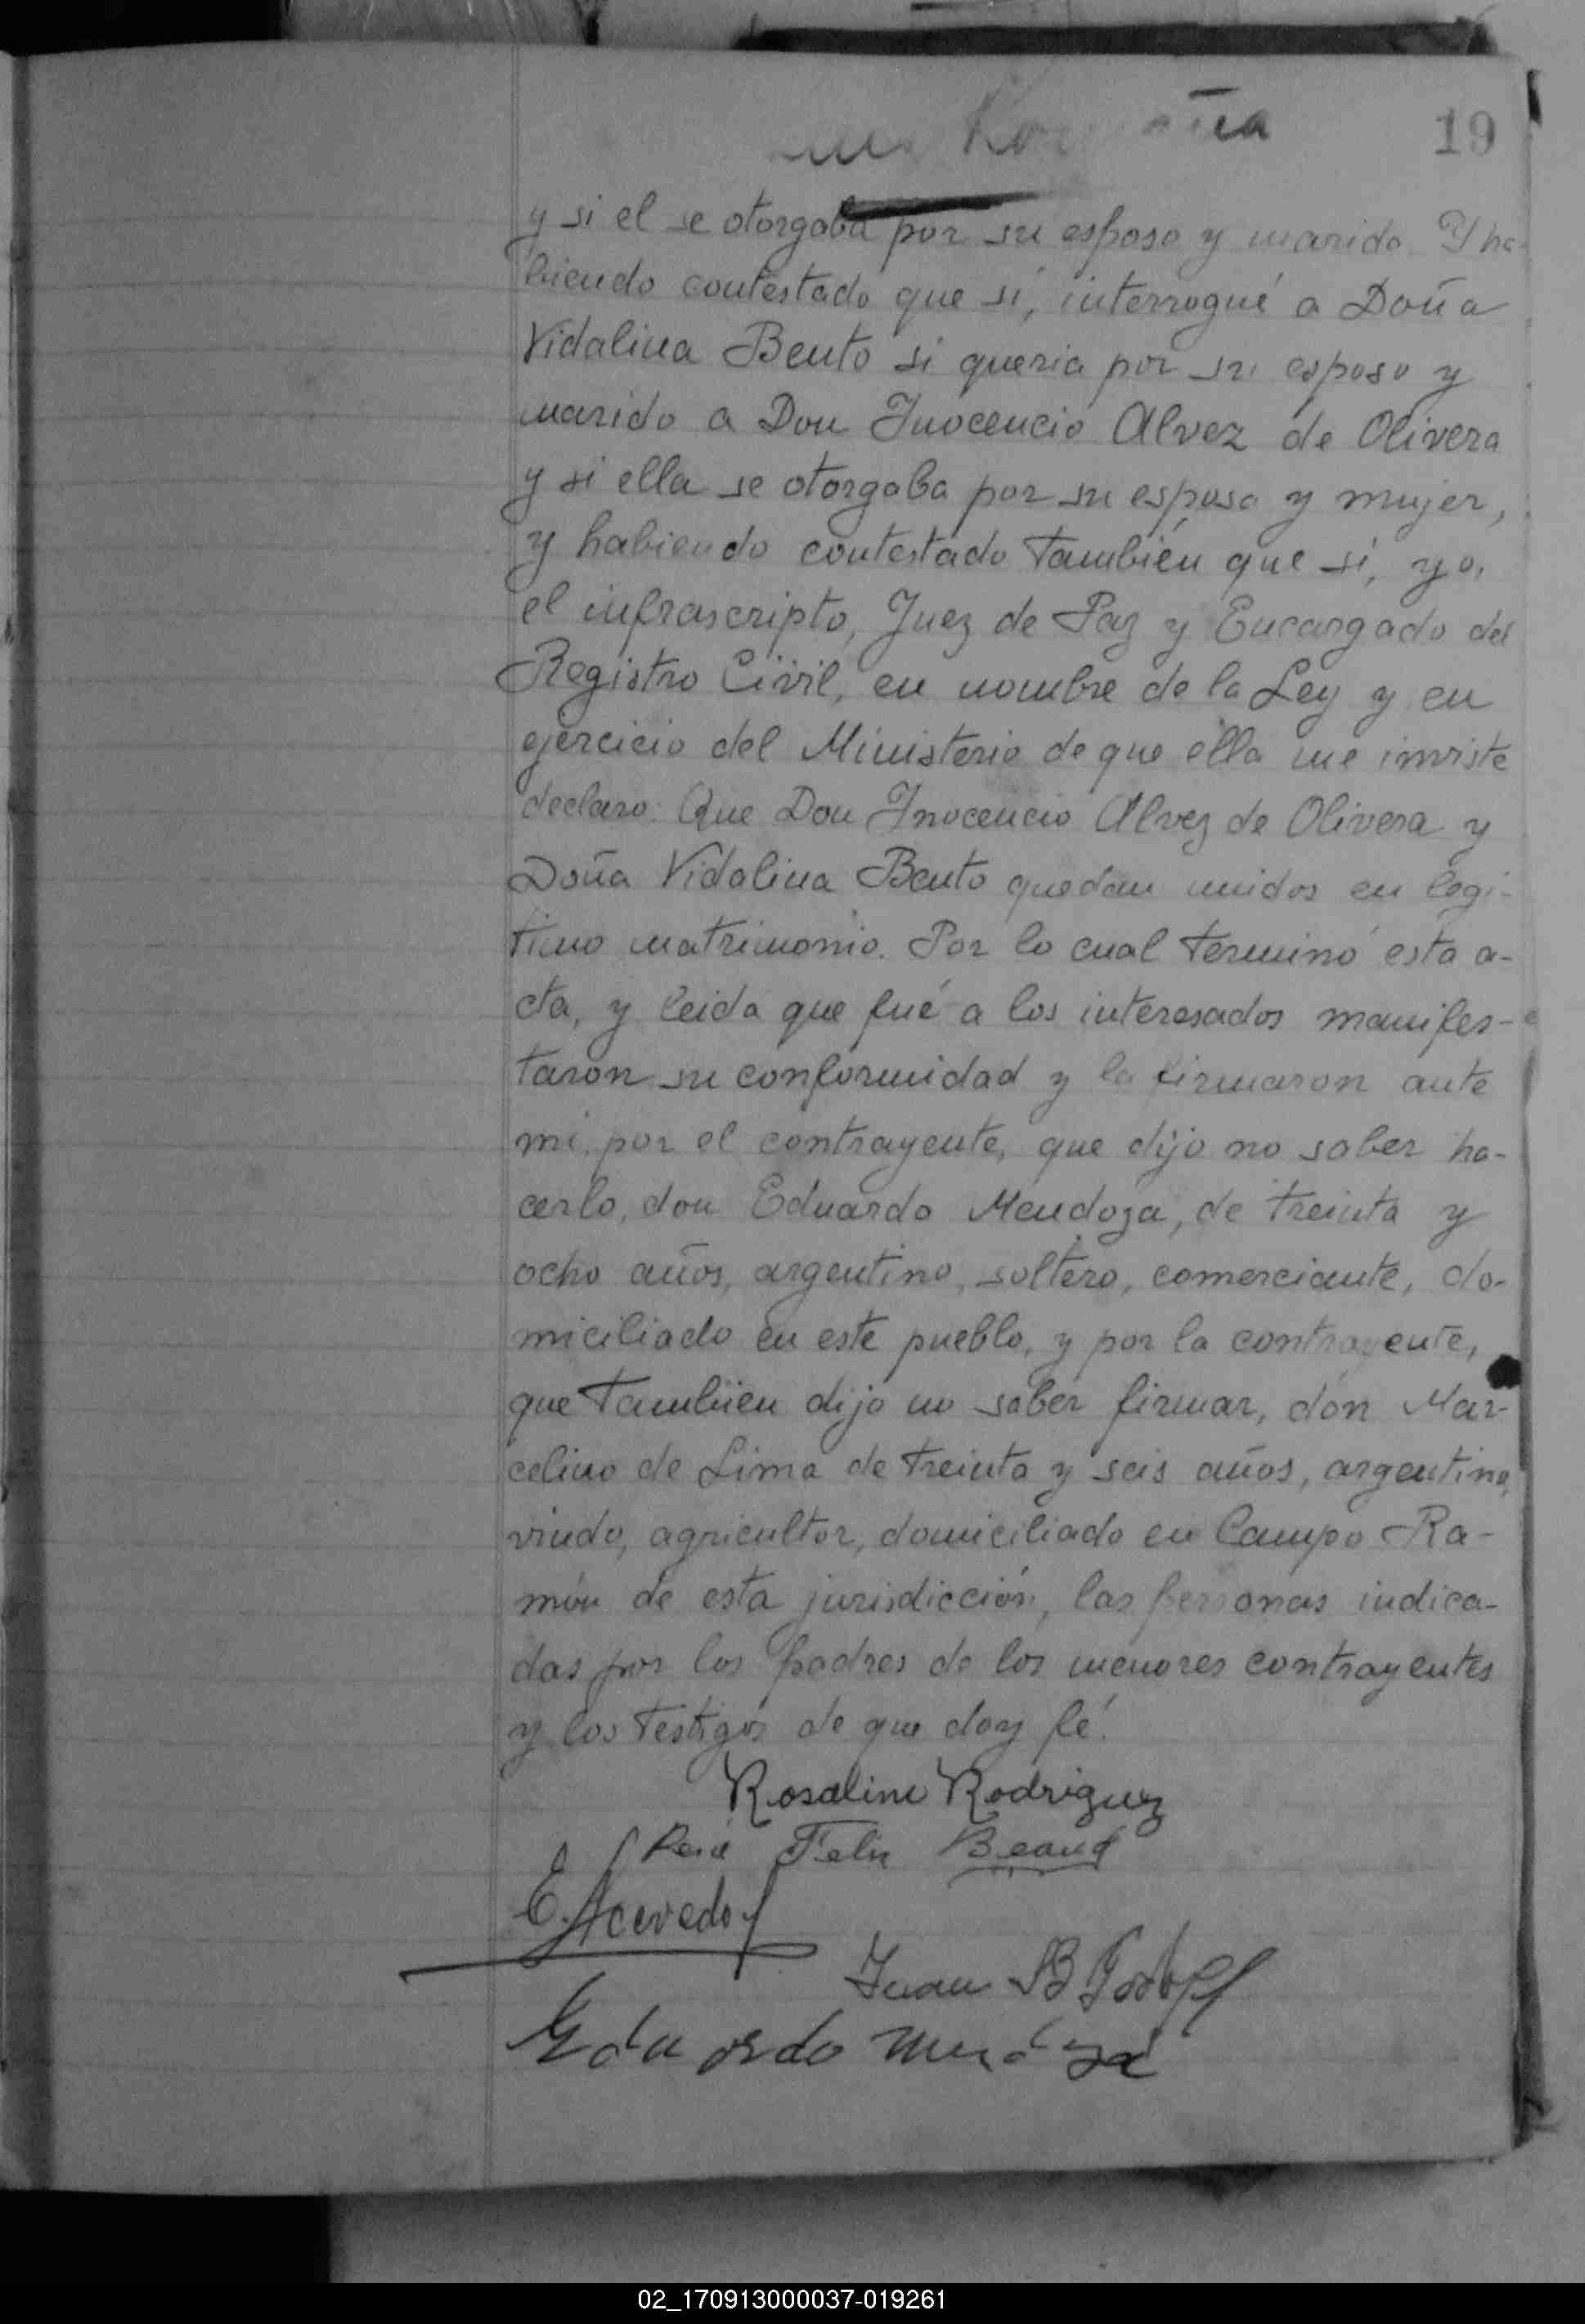 19
y si el se otorgaba por su esposo y marido. Y ha-
biendo contestado que si, interrogué a Doña
Vidalina Bento si queria por su esposo y
marido a Don Inocencio Alvez de Olivera
y si ella se otorgaba por su esposa y mujer,
y habiendo contestado también que si, yo,
el infrascripto, Juez de Paz y Encargado del
Registro Civil, en nombre de la Ley y en
ejercicio del Ministerio de que ella me inviste
declaro: Que Don Inocencio Alvez de Olivera y
Doña Vidalina Bento quedan unidos en legi-
timo matrimonio. Por lo cual terminó esta a-
cta, y leida que fué a los interesados manifes-
taron su conformidad y la firmaron ante
mi, por el contrayente, que dijo no saber ha-
cerlo, don Eduardo Mendoza, de treinta y
ocho años, argentino, soltero, comerciante, do-
miciliado en este pueblo, y por la contrayente,
que tambien dijo no saber firmar, don Mar-
celino de Lima de treinta y seis años, argentino,
viudo, agricultor, domiciliado en Campo Ra-
món de esta jurisdicción, las personas indica-
das por los padres de los menores contrayentes
y los testigos de que doy fé.
Rosalino Rodriguez
Felix
E. Acevedo
Juan B
Eduardo Mendoza
02_170913000037-019261